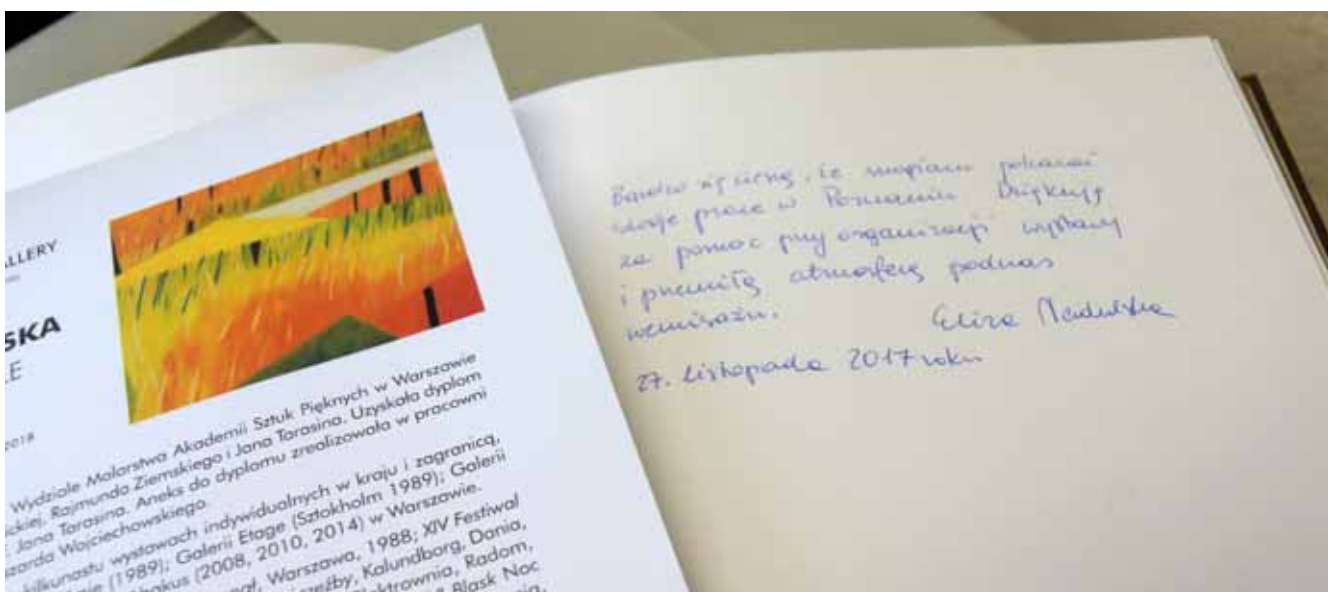 ALLERY
SKA
LE
2018
Wydziale Malarstwa Akademii Sztuk Pięknych w Warszawie
ckiej, Rajmunda Ziemskiego i Jana Tarasina. Uzyskała dyplom
Jana Tarasina. Aneks do dyplomu zrealizowała w pracowni
szarda Wojciechowskiego.
kilkunastu wystawach indywidualnych w kraju i zagranicą,
(1989); Galerii Etage (Sztokholm 1989); Galerii
Abakus (2008, 2010, 2014) w Warszawie.
Warszawa, 1988; XIV Festiwal
Kalundborg, Dania,
Elektrownia, Radom,
Blask Noc
Bardzo się cieszę, że mogłam pokazać
swoje prace w Poznaniu Dziękuję
za pomoc przy organizacji wystawy
i przemiłą atmosferę podczas
wernisażu.
Eliza
27. listopada 2017 roku